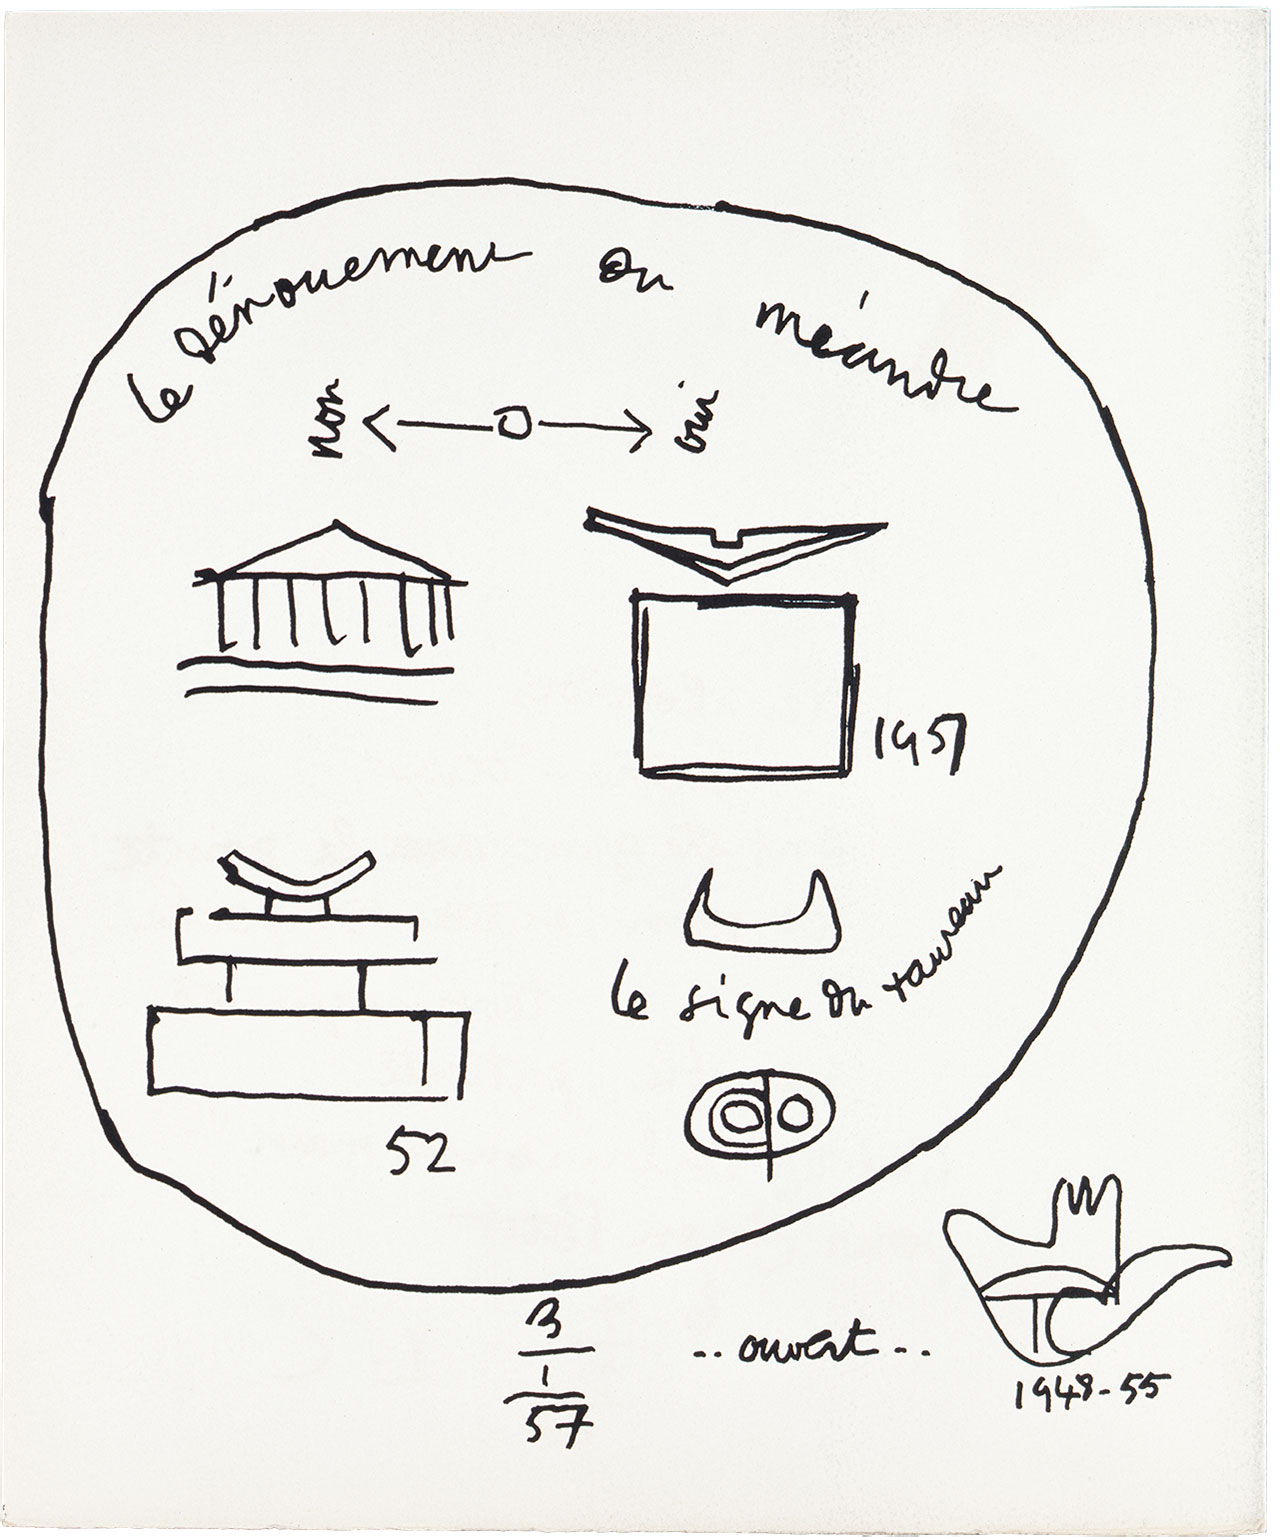 le dénouement du méandre
non
oui
1951
le signe du taureau
52
3
1
57
.. ouvert ..
1948-55